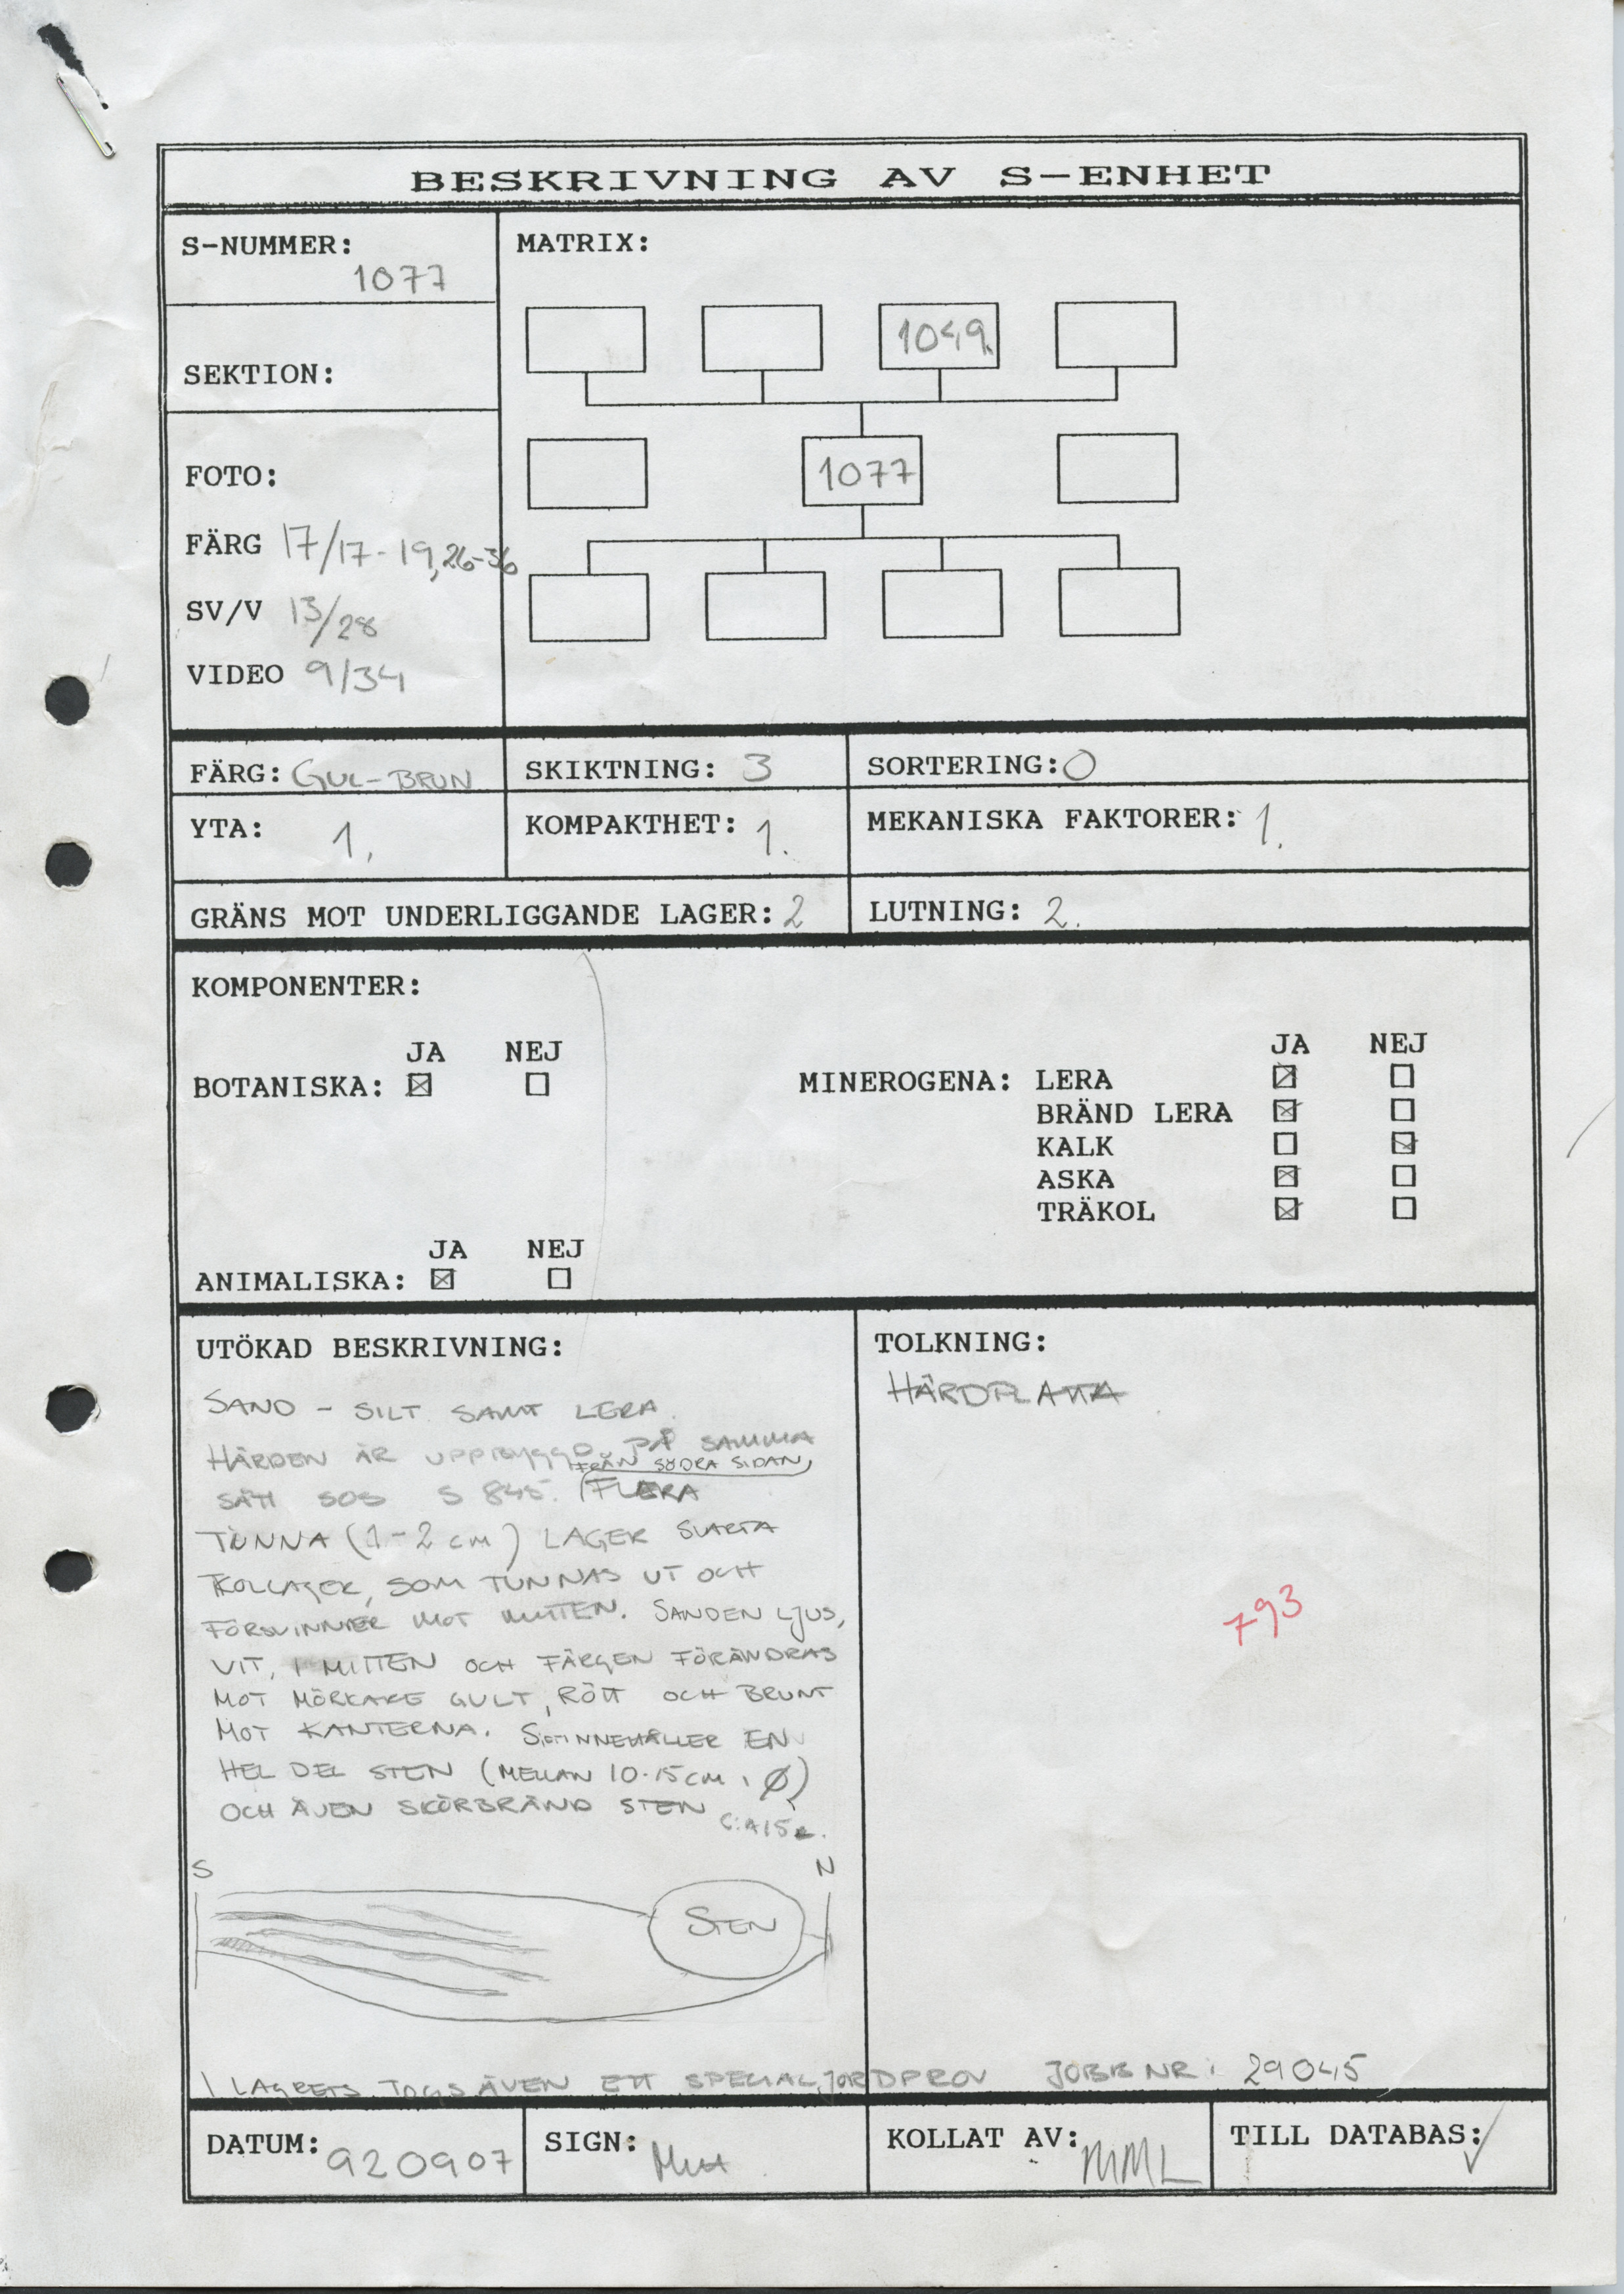 BESKRIVNING AV S-ENHET
S-NUMMER:
1077
MATRIX:
1049.
1077
SEKTION:
FOTO:
FÄRG 17/17-19,26-36
SV/V 13/28
VIDEO 9/34
FÄRG: GUL-BRUN
SKIKTNING: 3
SORTERING: 0
YTA: 1.
KOMPAKTHET: 1.
MEKANISKA FAKTORER: 1.
GRÄNS MOT UNDERLIGGANDE LAGER: 2
LUTNING: 2.
KOMPONENTER:
JA NEJ
BOTANISKA: ☒ ☐
JA NEJ
MINEROGENA: LERA ☒ ☐
BRÄND LERA ☒ ☐
KALK ☐ ☒
ASKA ☒ ☐
TRÄKOL ☒ ☐
JA NEJ
ANIMALISKA: ☒ ☐
UTÖKAD BESKRIVNING:
SAND - SILT SAMT LERA.
HÄRDEN ÄR UPPBYGGD PÅ SAMMA
FRÅN SÖDRA SIDAN
SÄTT SOS S 845. FLERA
TUNNA (1-2 CM) LAGER SVARTA
KOLLAGER, SOM TUNNAS UT OCH
FÖRSVINNER MOT MITTEN. SANDEN LJUS,
VIT, I MITTEN OCH FÄRGEN FÖRÄNDRAS
MOT MÖRKARE GULT, RÖTT OCH BRUNT
MOT KANTERNA. INNEHÅLLER EN
HEL DEL STEN (MELLAN 10-15CM I Ø)
OCH ÄVEN SKÖRBRÄND STEN
S
N
STEN
TOLKNING:
HÄRDPLATTA
793
I LAGRETS TOGS ÄVEN ETT SPECIALJORDPROV JOBBNR: 29045
DATUM: 920907
SIGN:
KOLLAT AV: MML
TILL DATABAS: ✓